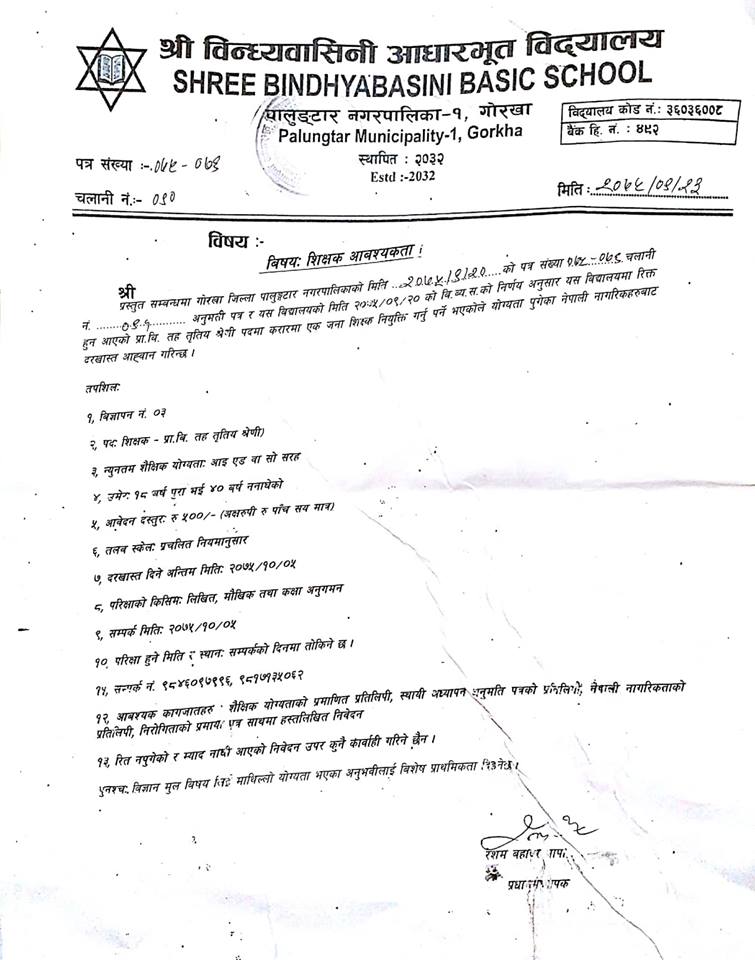 श्री विन्ध्यवासिनी आधारभूत विद्यालय
SHREE BINDHYABASINI BASIC SCHOOL
पालुङटार नगरपालिका-१, गोरखा
Palungtar Municipality-1, Gorkha
स्थापित : २०३२
Estd :-2032
विद्यालय कोड नं.: ३६०३६००८
बैंक हि. नं. : ४९२
पत्र संख्या :- ०७५ - ०७६
चलानी नं.:-
मिति : २०७५/०९/२३
विषय :-
विषयः शिक्षक आबश्यकता !
श्री
प्रस्तुत सम्बन्धमा गोरखा जिल्ला पालुङटार नगरपालिकाको मिति ...२०७५/९/२०.... को पत्र संख्या ०७५-०७६ चलानी
नं. .................. अनुमती पत्र र यस बिद्यालयको मिति २०७५/०९/२० को बि.ब्य.स.को निर्णय अनुसार यस बिद्यालयमा रिक्त
हुन आएको प्रा.बि. तह तृतिय श्रेणी पदमा करारमा एक जना शिक्षक नियुक्ति गर्नु पर्ने भएकोले योग्यता पुगेका नेपाली नागरिकहरुबाट
दरखास्त आह्वान गरिन्छ ।
तपशिलः
१, बिज्ञापन नं. ०३
२, पदः शिक्षक - प्रा.बि. तह तृतिय श्रेणी)
३, न्युनतम शैक्षिक योग्यताः आइ एड वा सो सरह
४, उमेरः १८ बर्ष पुरा भई ४० बर्ष ननाघेको
५, आवेदन दस्तुरः रु ५००/- (अक्षरुपी रु पाँच सय मात्र)
६, तलब स्केलः प्रचलित नियमानुसार
७, दरखास्त दिने अन्तिम मितिः २०७५/१०/०५
८, परिक्षाको किसिमः लिखित, मौखिक तथा कक्षा अनुगमन
९, सम्पर्क मितिः २०७५/१०/०५
१०, परिक्षा हुने मिति र स्थानः सम्पर्कको दिनमा तोकिने छ ।
११, सम्पर्क नं. ९८४६०९७९९६, ९८१७१३५०६२
१२, आबश्यक कागजातहरु : शैक्षिक योग्यताको प्रमाणित प्रतिलिपी, स्थायी अध्यापन अनुमति पत्रको प्रतिलिपी, नेपाली नागरिकताको
प्रतिलिपी, निरोगिताको प्रमाण पत्र साथमा हस्तलिखित निवेदन
१३, रित नपुगेको र म्याद नाघी आएको निवेदन उपर कुनै कार्वाही गरिने छैन ।
पुनश्चः बिज्ञान मुल विषय लिई माथिल्लो योग्यता भएका अनुभवीलाई बिशेष प्राथमिकता दिईनेछ ।
रेशम बहादुर थापा
प्रधानाध्यापक